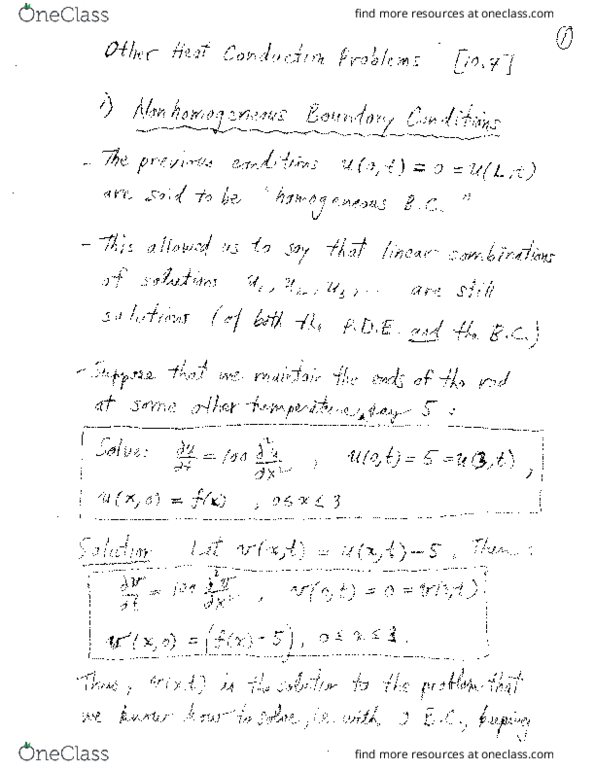 OneClass
find more resources at oneclass.com
①
Other Heat Conduction Problems [10.4]
i) Nonhomogeneous Boundary Conditions
- The previous conditions u(0,t) = 0 = u(L,t)
are said to be "homogeneous B.C."
- This allowed us to say that linear combinations
of solutions u₁, u₂, u₃, ... are still
solutions (of both the P.D.E. and the B.C.)
- Suppose that we maintain the ends of the rod
at some other temperature, say 5 :
Solve: ∂u/∂t = 100 ∂²u/∂x² , u(0,t) = 5 = u(3,t) ,
u(x,0) = f(x) , 0 ≤ x ≤ 3
Solution Let v(x,t) = u(x,t) - 5 , Then :
∂v/∂t = 100 ∂²v/∂x² , v(0,t) = 0 = v(3,t)
v(x,0) = (f(x) - 5) , 0 ≤ x ≤ 3.
Thus, v(x,t) is the solution to the problem that
we know how to solve, i.e. with B.C., keeping
OneClass
find more resources at oneclass.com